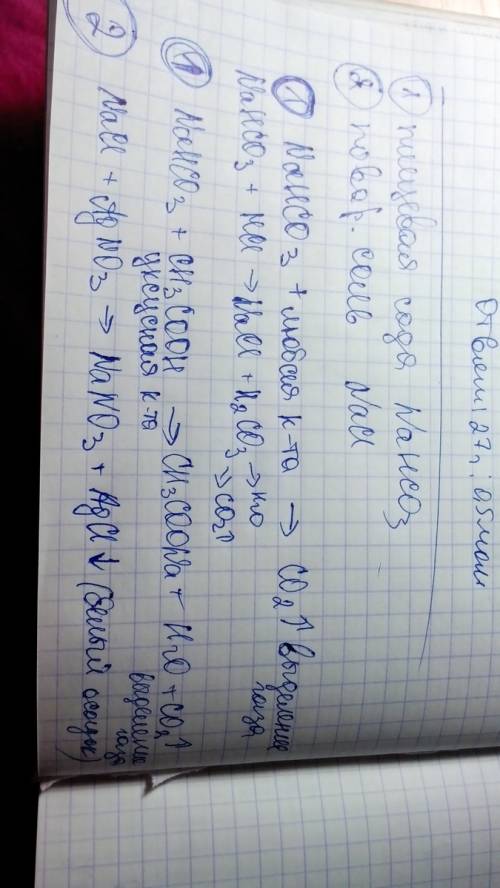 Ответ: 27г; 0,5 моль
① пищевая сода NaHCO3
② повар. соль NaCl
① NaHCO3 + любая к-та → CO2↑ выделение газа
NaHCO3 + HCl → NaCl + H2CO3 → H2O
→ CO2↑
① NaHCO3 + CH3COOH → CH3COONa + H2O + CO2↑
уксусная к-та выделение газа
② NaCl + AgNO3 → NaNO3 + AgCl↓ (белый осадок)